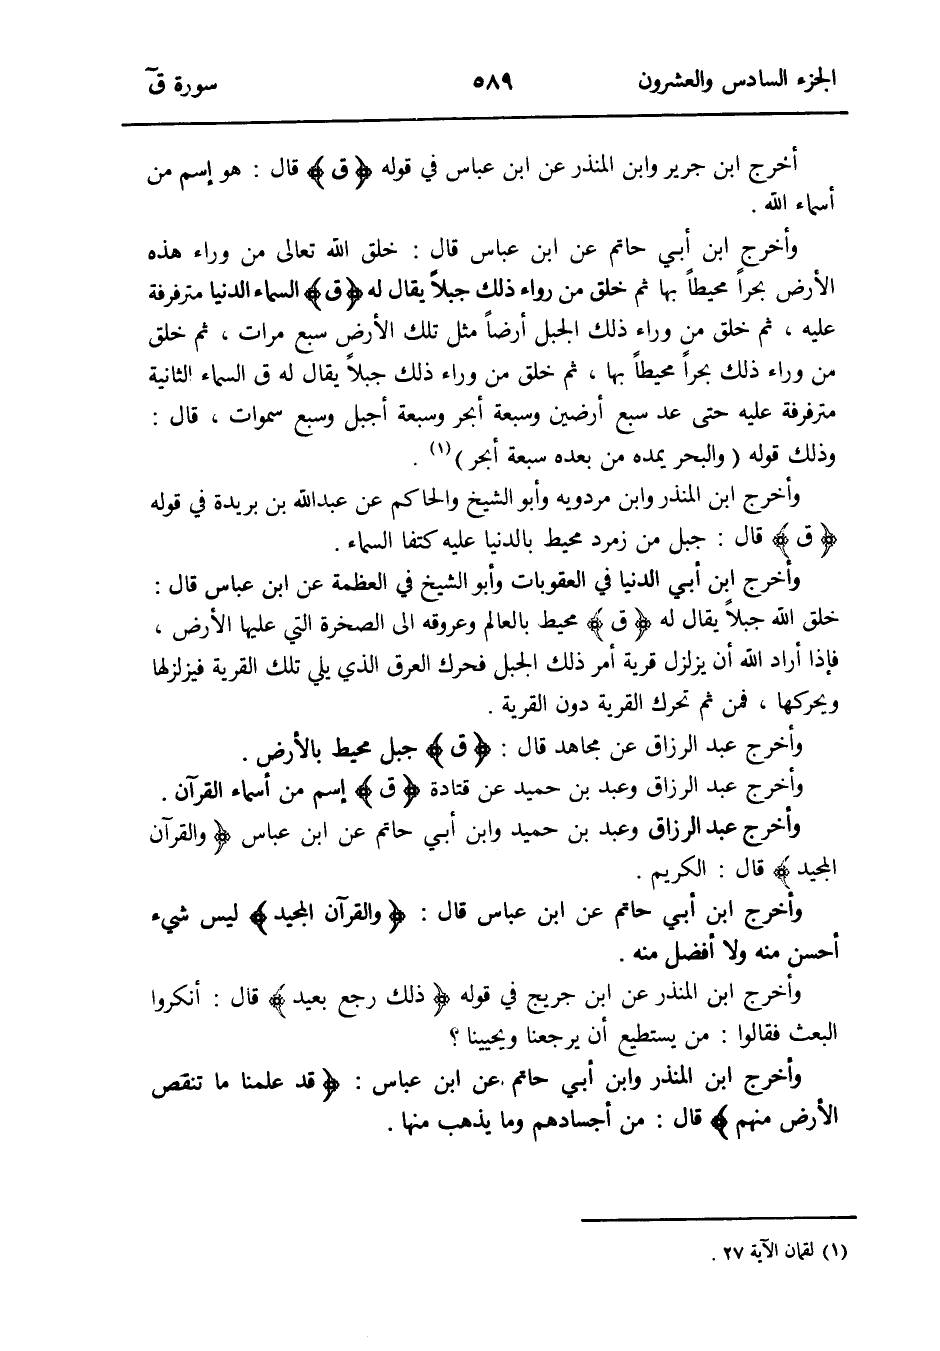 الجزء السادس والعشرون ٥٨٩ سورة قۤ
أخرج ابن جرير وابن المنذر عن ابن عباس في قوله ﴿ ق ﴾ قال : هو إسم من
أسماء الله .
وأخرج ابن أبي حاتم عن ابن عباس قال : خلق الله تعالى من وراء هذه
الأرض بحراً محيطاً بها ثم خلق من رواء ذلك جبلاً يقال له ﴿ ق ﴾ السماء الدنيا مترفرفة
عليه ، ثم خلق من وراء ذلك الجبل أرضاً مثل تلك الأرض سبع مرات ، ثم خلق
من وراء ذلك بحراً محيطاً بها ، ثم خلق من وراء ذلك جبلاً يقال له ق السماء الثانية
مترفرفة عليه حتى عد سبع أرضين وسبعة أبحر وسبعة أجبل وسبع سموات ، قال :
وذلك قوله ( والبحر يمده من بعده سبعة أبحر ) (١) .
وأخرج ابن المنذر وابن مردويه وأبو الشيخ والحاكم عن عبدالله بن بريدة في قوله
﴿ ق ﴾ قال : جبل من زمرد محيط بالدنيا عليه كتفا السماء .
وأخرج ابن أبي الدنيا في العقوبات وأبو الشيخ في العظمة عن ابن عباس قال :
خلق الله جبلاً يقال له ﴿ ق ﴾ محيط بالعالم وعروقه الى الصخرة التي عليها الأرض ،
فإذا أراد الله أن يزلزل قرية أمر ذلك الجبل فحرك العرق الذي يلي تلك القرية فيزلزلها
ويحركها ، فمن ثم تحرك القرية دون القرية .
وأخرج عبد الرزاق عن مجاهد قال : ﴿ ق ﴾ جبل محيط بالأرض .
وأخرج عبد الرزاق وعبد بن حميد عن قتادة ﴿ ق ﴾ إسم من أسماء القرآن .
وأخرج عبد الرزاق وعبد بن حميد وابن أبي حاتم عن ابن عباس ﴿ والقرآن
المجيد ﴾ قال : الكريم .
وأخرج ابن أبي حاتم عن ابن عباس قال : ﴿ والقرآن المجيد ﴾ ليس شيء
أحسن منه ولا أفضل منه .
وأخرج ابن المنذر عن ابن جريج في قوله ﴿ ذلك رجع بعيد ﴾ قال : أنكروا
البعث فقالوا : من يستطيع أن يرجعنا ويحيينا ؟
وأخرج ابن المنذر وابن أبي حاتم عن ابن عباس : ﴿ قد علمنا ما تنقص
الأرض منهم ﴾ قال : من أجسادهم وما يذهب منها .
(١) لقمان الآية ٢٧ .